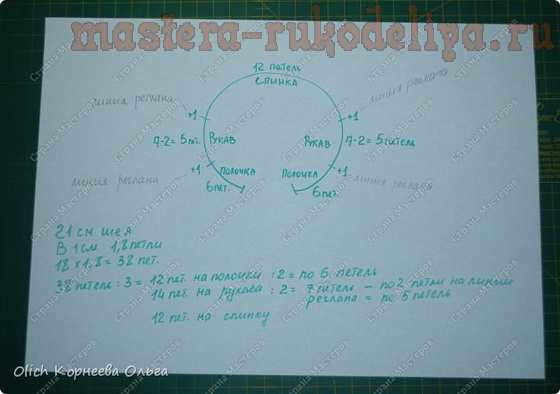 mastera-rukodeliya.ru
12 петель
спинка
линия реглана
линия реглана
+1
+1
7-2= 5пет.
рукав
рукав
7-2= 5петель
+1
+1
линия реглана
полочка
полочка
линия реглана
6пет.
6пет.
21 см шея
В 1 см 1,8 петли
18 x 1,8 = 38 пет.
38 петель : 3 = 12 пет. на полочки : 2 = по 6 петель
14 пет. на рукава : 2 = 7 петель - по 2 петли на линию
реглана = по 5 петель
12 пет. на спинку
Olich Корнеева Ольга
Страна Мастеров